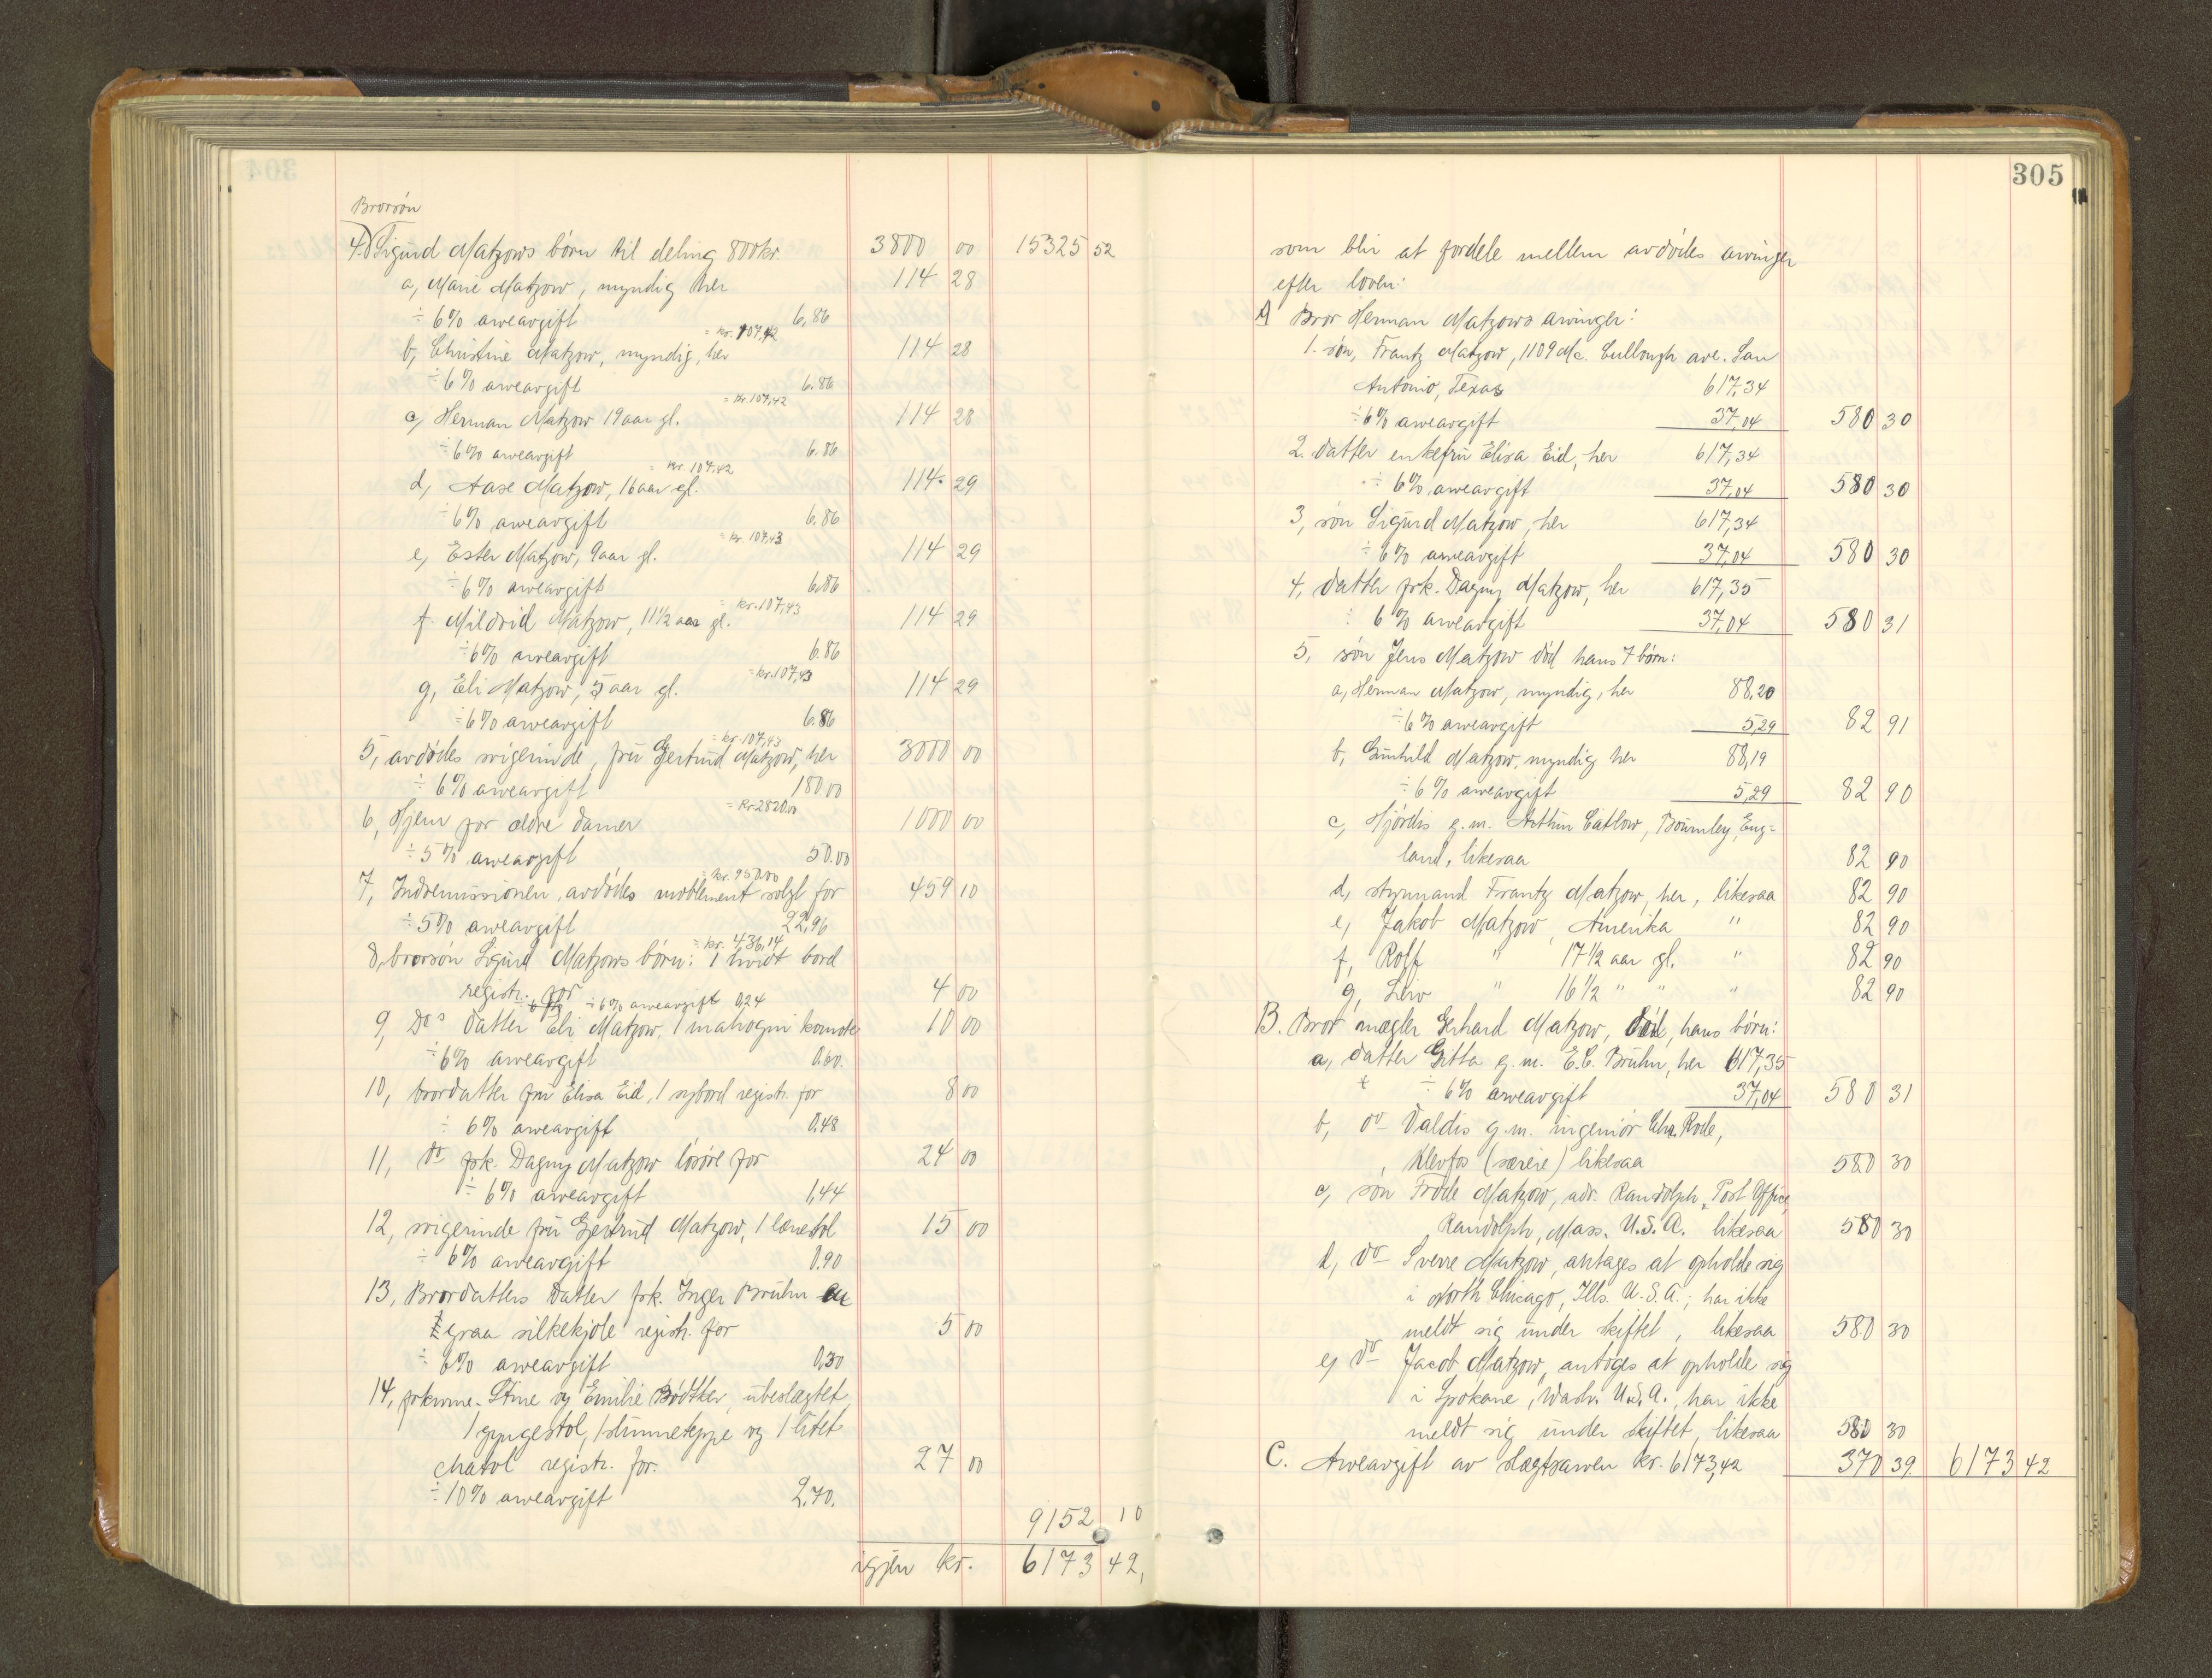 Brorsön
4. Sigurd Matzows börn til deling 800 kr. 3800 00 15325 52
a, Marie Matzow, myndig her 114 28
÷ 6% arveavgift 6,86
= kr. 107,42
b, Christine Matzow, myndig, her 114 28
÷ 6% arveavgift 6.86
= kr. 107,42
c, Herman Matzow 19 aar gl. 114 28
÷ 6% arveavgift 6.86
= kr. 107,42
d, Aase Matzow, 16 aar gl. 114. 29
÷ 6% arveavgift 6.86
= kr. 107,43
e, Ester Matzow, 9 aar gl. 114 29
÷ 6% arveavgift 6.86
= kr. 107,43
f. Mildrid Matzow, 11½ aar gl. 114 29
÷ 6% arveavgift 6.86
= kr. 107,43
g, Eli Matzow, 5 aar gl. 114 29
÷ 6% arveavgift 6.86
= kr. 107,43
5, avdödes svigerinde, frü Gertrud Matzow, her 3000 00
÷ 6% arveavgift 180.00
= kr 2820.00
6, Hjem for ældre damer 1000 00
÷ 5% arveavgift 50.00
= kr. 950.00
7, Indremissionen, avdödes moblement solgt for 459 10
÷ 5% arveavgift 22,96
= kr. 436,14
8, brorsön Sigurd Matzows börn: 1 hvidt bord
registr. for 4 00
÷ 6% arveavgift 0,24
9, Dos datter Eli Matzow, 1 mahogni komode 10 00
÷ 6% arveavgift 0.60.
10, brordatter frü Elisa Eid, 1 sybord registr. for 8 00
÷ 6% arveavgift 0,48
11, do frk. Dagny Matzow lösöre for 24 00
÷ 6% arveavgift 1,44
12, svigerinde frü Gertrud Matzow, 1 lænestol 15 00
÷ 6% arveavgift 0.90
13, Brordatters datter frk. Inger Brühn en
graa silkekjole registr. for 5 00
÷ 6% arveavgift 0,30
14, frknne. Stine og Emilie Bödtker, ubeslægtet
1 gyngestol, 1 stümneteppe og 1 litet
chatol registr. for. 27 00
÷ 10% arveavgift 2.70.
9152 10
igjen kr. 6173 42,
305
som blir at fordele mellem avdödes arvinger
efter loven:
A Bror Herman Matzows arvinger:
1. sön, Frantz Matzow, 1109 Mc. Cullough ave. San
Antonio, Texas 617,34
÷ 6% arveavgift 37,04 580 30
2. datter enkefrü Elisa Eid, her 617,34
÷ 6% arveavgift 37,04 580 30
3, sön Sigurd Matzow, her 617,34
÷ 6% arveavgift 37,04 580 30
4, datter frk. Dagny Matzow, her 617,35
÷ 6% arveavgift 37,04 580 31
5, sön Jens Matzow död hans 7 börn:
a, Herman Matzow, myndig, her 88,20
÷ 6% arveavgift 5,29 82 91
b, Günhild Matzow, myndig her 88,19
÷ 6% arveavgift 5,29 82 90
c, Hjördis g.m. Arthür Catlow, Bürnley, Eng=
land, likesaa 82 90
d, styrmand Frantz Matzow, her, likesaa 82 90
e, Jakob Matzow, Amerika " 82 90
f, Rolf " 17½ aar gl. " 82 90
g, Leiv " 16½ " " " 82 90
B. Bror mægler Gerhard Matzow, död, hans börn:
a, datter Gitta g.m. E.C. Brühn, her 617,35
÷ 6% arveavgift 37,04 580 31
b, do Valdis g.m. ingeniör Chr. Rode,
Klevfos (særeie) likesaa 580 30
c, sön Frode Matzow, adr. Randolph, Post Office,
Randolph, Mass. U.S.A. likesaa 580 30
d, do Sverre Matzow, antages at opholde sig
i North Chicago, Ills. U.S.A.; har ikke
meldt sig under skiftet, likesaa 580 30
e, do Jacob Matzow, antages at opholde sig
i Spokane, Wash. U.S.A., har ikke
meldt sig under skiftet, likesaa 580 30
C. Arveavgift av slægtsarven kr. 6173,42 370 39 6173 42